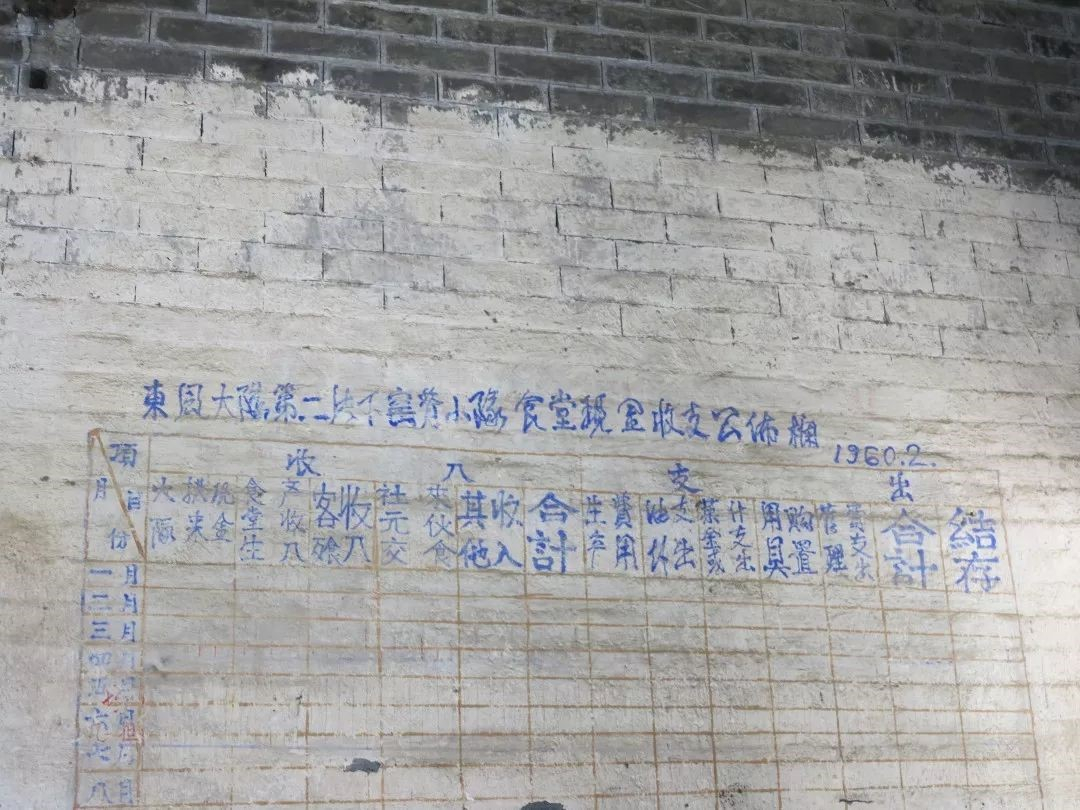 東大隊第二下小隊食堂現金收支公佈欄
1960.2.
項目
月份
收入
支出
大隊拱来現金
食堂生产收入
客飱收入
社元交来伙食
其他收入
合計
生产費用
油什支出
金或什支出
用具购置
管理費支出
合計
結存
一月
二月
三月
四月
五月
六月
七月
八月